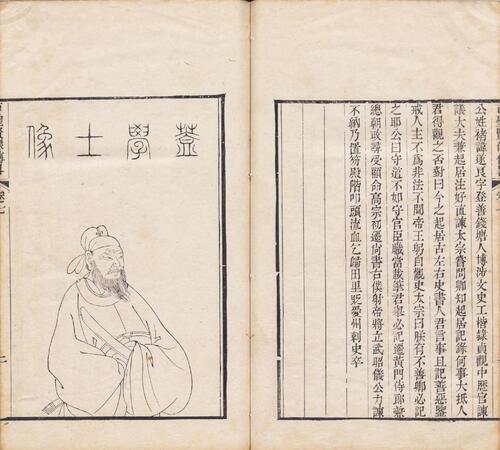 公姓褚諱遂良字登善錢塘人博涉文史工楷隸貞觀中歷官諫
議大夫兼起居注好直諫太宗嘗問卿知起居記錄何事大抵人
君得觀之否對曰今之起居古左右史書人君言事且記善惡鑒
戒人主不為非法不聞帝王躬自觀史太宗曰朕有不善卿必記
之耶公曰守道不如守官臣職當載筆君舉必記遷黃門侍郎兼
總朝政尋受顧命高宗初遷尚書右僕射帝將立武昭儀公力諫
不納乃置笏殿階叩頭流血乞歸田里貶愛州刺史卒
學士像
卷七